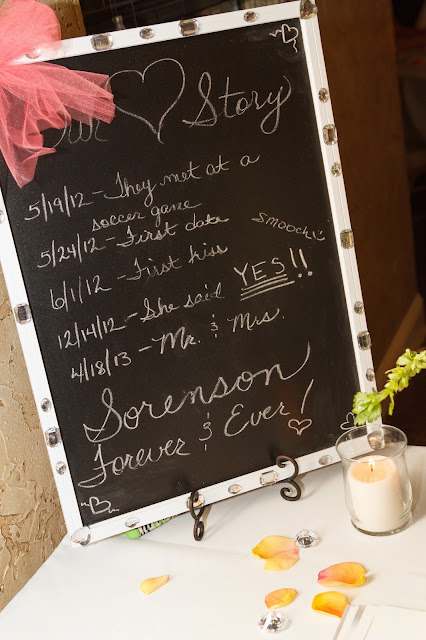 Our Story
5/19/12 - They met at a
soccer game
5/24/12 - First date
6/1/12 - First kiss smooch
12/14/12 - She said YES!!
4/18/13 - Mr. & Mrs.
Sorenson
Forever & Ever!